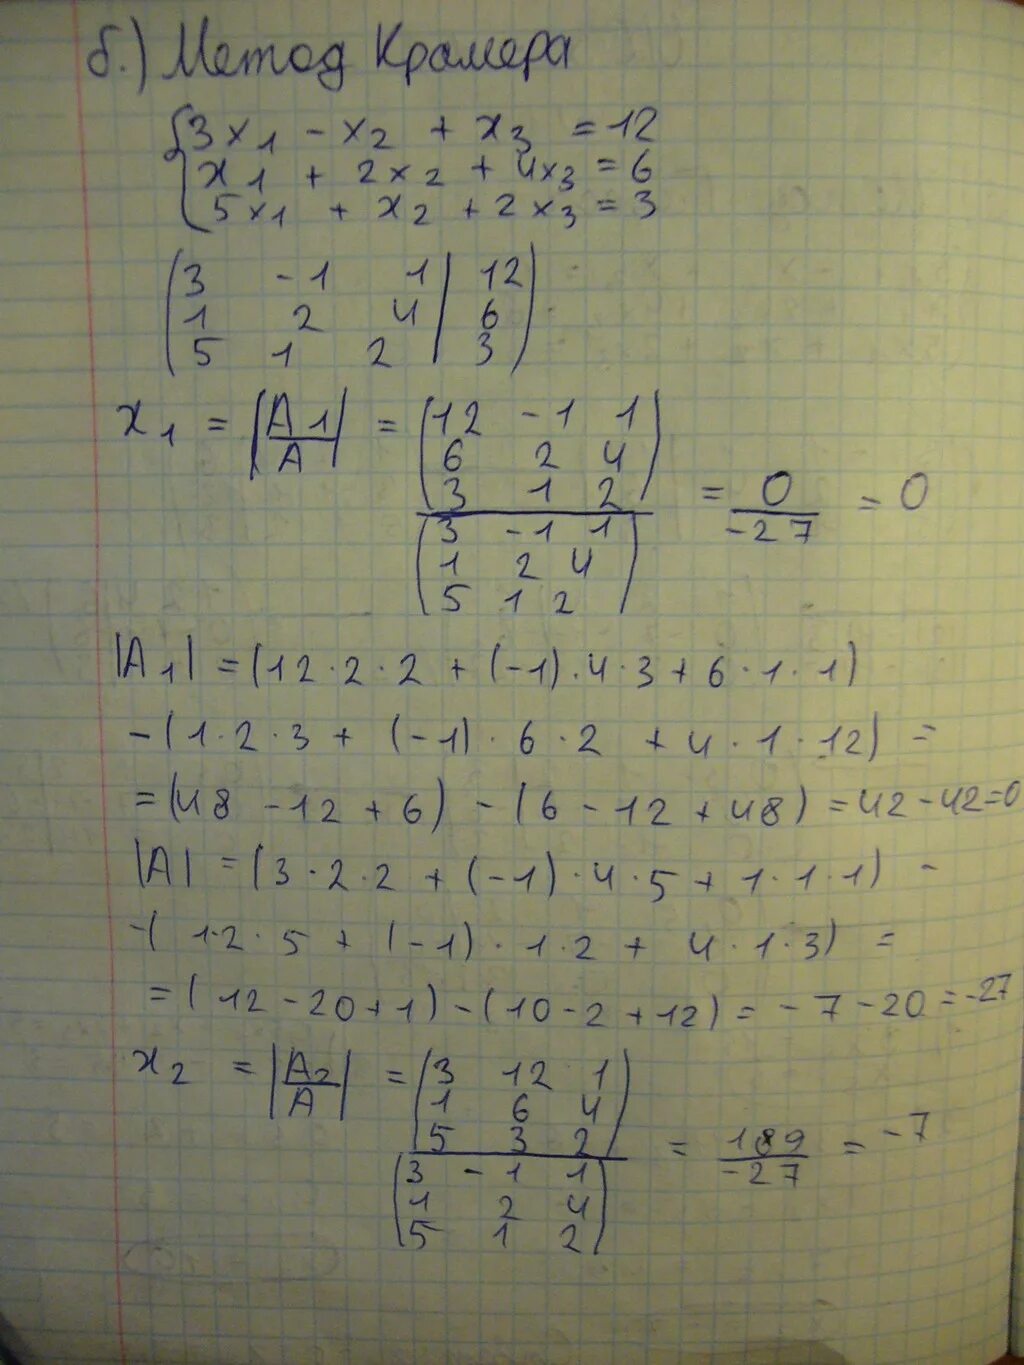 б.) Метод Крамера
3x1 - x2 + x3 = 12
x1 + 2x2 + 4x3 = 6
5x1 + x2 + 2x3 = 3
(3 -1 1 | 12)
1 2 4 | 6
5 1 2 | 3
x1 = |A1/A| = (12 -1 1)
6 2 4
3 1 2
(3 -1 1)
1 2 4
5 1 2
= 0/-27 = 0
|A1| = (12·2·2 + (-1)·4·3 + 6·1·1)
-(1·2·3 + (-1)·6·2 + 4·1·12) =
=(48 -12 + 6) - (6 - 12 + 48) = 42 - 42 = 0
|A| = (3·2·2 + (-1)·4·5 + 1·1·1) -
-(1·2·5 + (-1)·1·2 + 4·1·3) =
= (12 - 20 + 1) - (10 - 2 + 12) = -7 - 20 = -27
x2 = |A2/A| = (3 12 1)
1 6 4
5 3 2
(3 -1 1)
1 2 4
5 1 2
= 189/-27 = -7